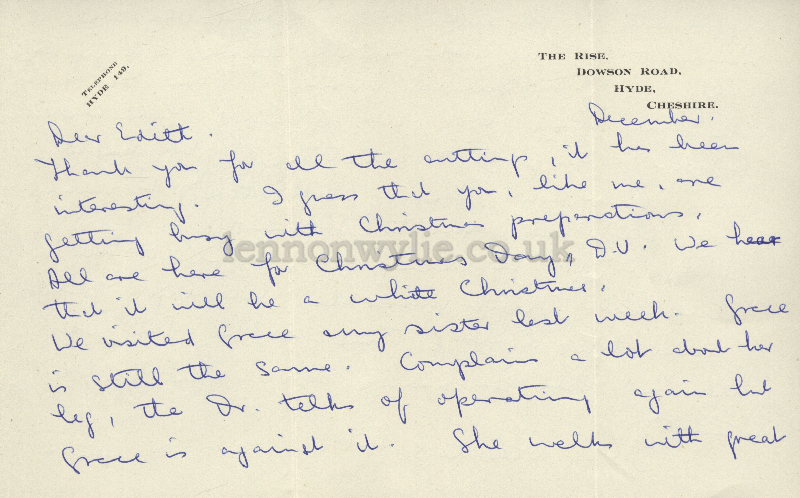 TELEPHONE
HYDE 149.
THE RISE,
DOWSON ROAD,
HYDE,
CHESHIRE.
December.
Dear Edith.
Thank you for all the cuttings, it has been
interesting. I guess that you, like me, are
getting busy with Christmas preparations.
All are here for Christmas Day, D.V. We hear
that it will be a white Christmas.
We visited Grace my sister last week. Grace
is still the same. Complains a lot about her
leg, the Dr. talks of operating again but
Grace is against it. She walks with great
lennonwylie.co.uk